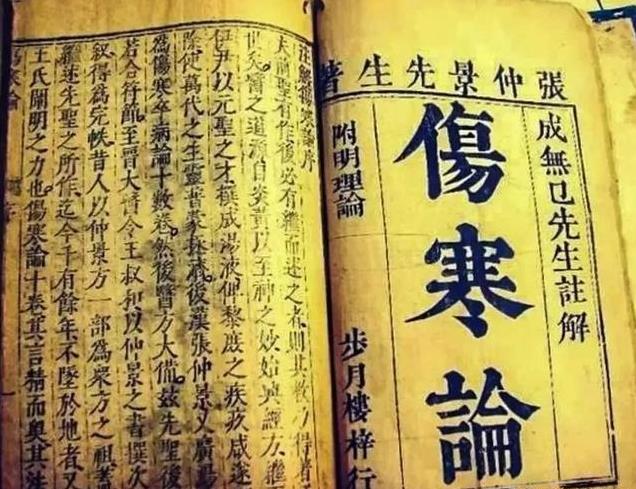 張仲景先生著
成無已先生註解
傷寒論
附明理論
步月樓梓行
注解傷寒論序
夫前聖有作後必有繼而述之者則其教乃得著
世矣醫之道源自炎黃以至神之妙始興經方繼
伊尹以元聖之才撰成湯液俾黎庶之疾疚咸遂
除使萬代之生靈普蒙拯濟後漢張仲景又廣湯
為傷寒卒病論十數卷然後醫方大備茲先聖後
若合符節至晉太醫令王叔和以仲景之書撰次
叙得為完帙昔人以仲景方一部為衆方之祖蓋
繼述先聖之所作迄今千有餘年不墜於地者又
王氏闡明之力也傷寒論十卷其言精而奥其法